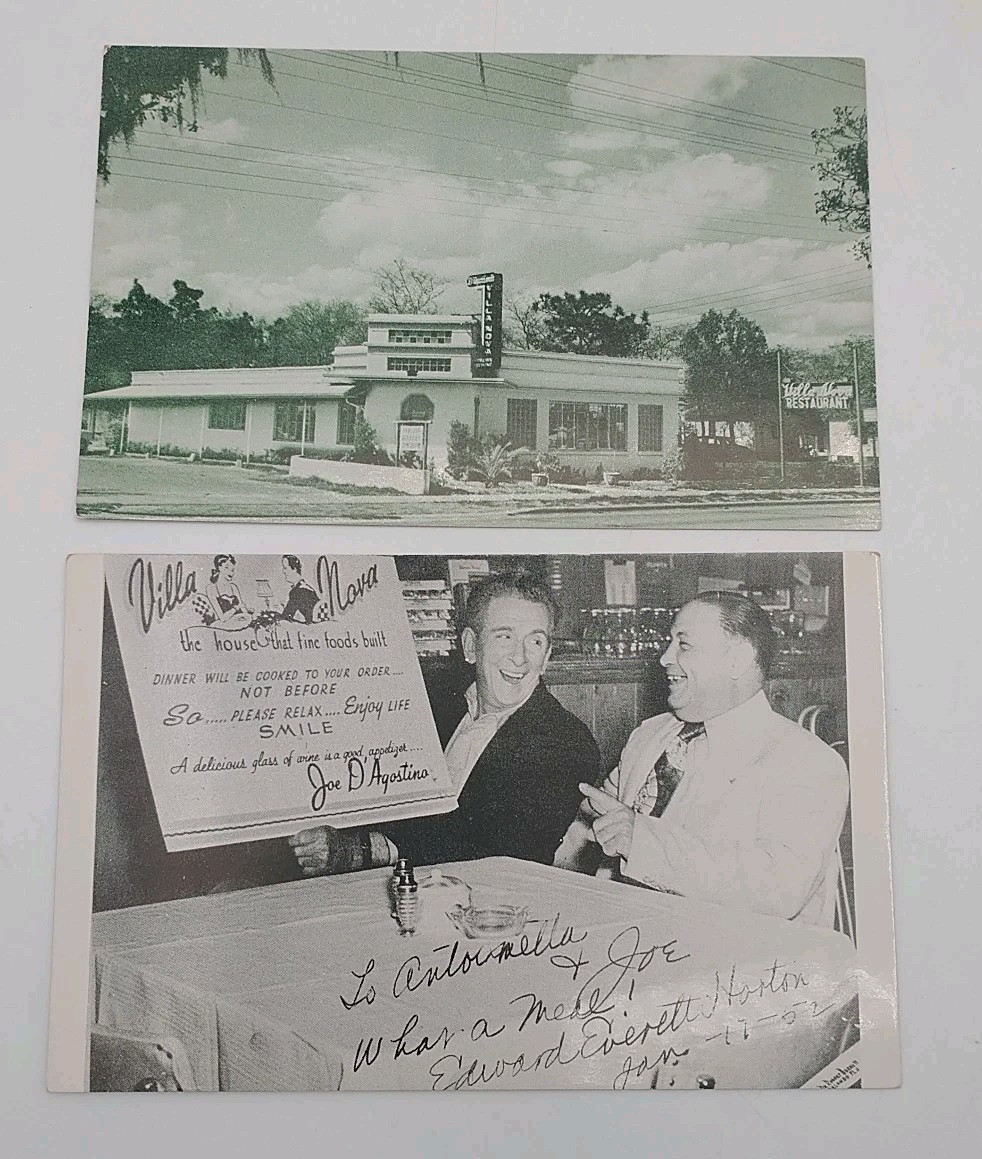 VILLA NOVA
Villa Nova
RESTAURANT
Villa Nova
the house that fine foods built
DINNER WILL BE COOKED TO YOUR ORDER....
NOT BEFORE
So..... PLEASE RELAX.... Enjoy LIFE
SMILE
A delicious glass of wine is a good appetizer....
Joe D'Agostino
To Antoinetta
& Joe
What a Meal!
Edward Everett Horton
Jan -17-52